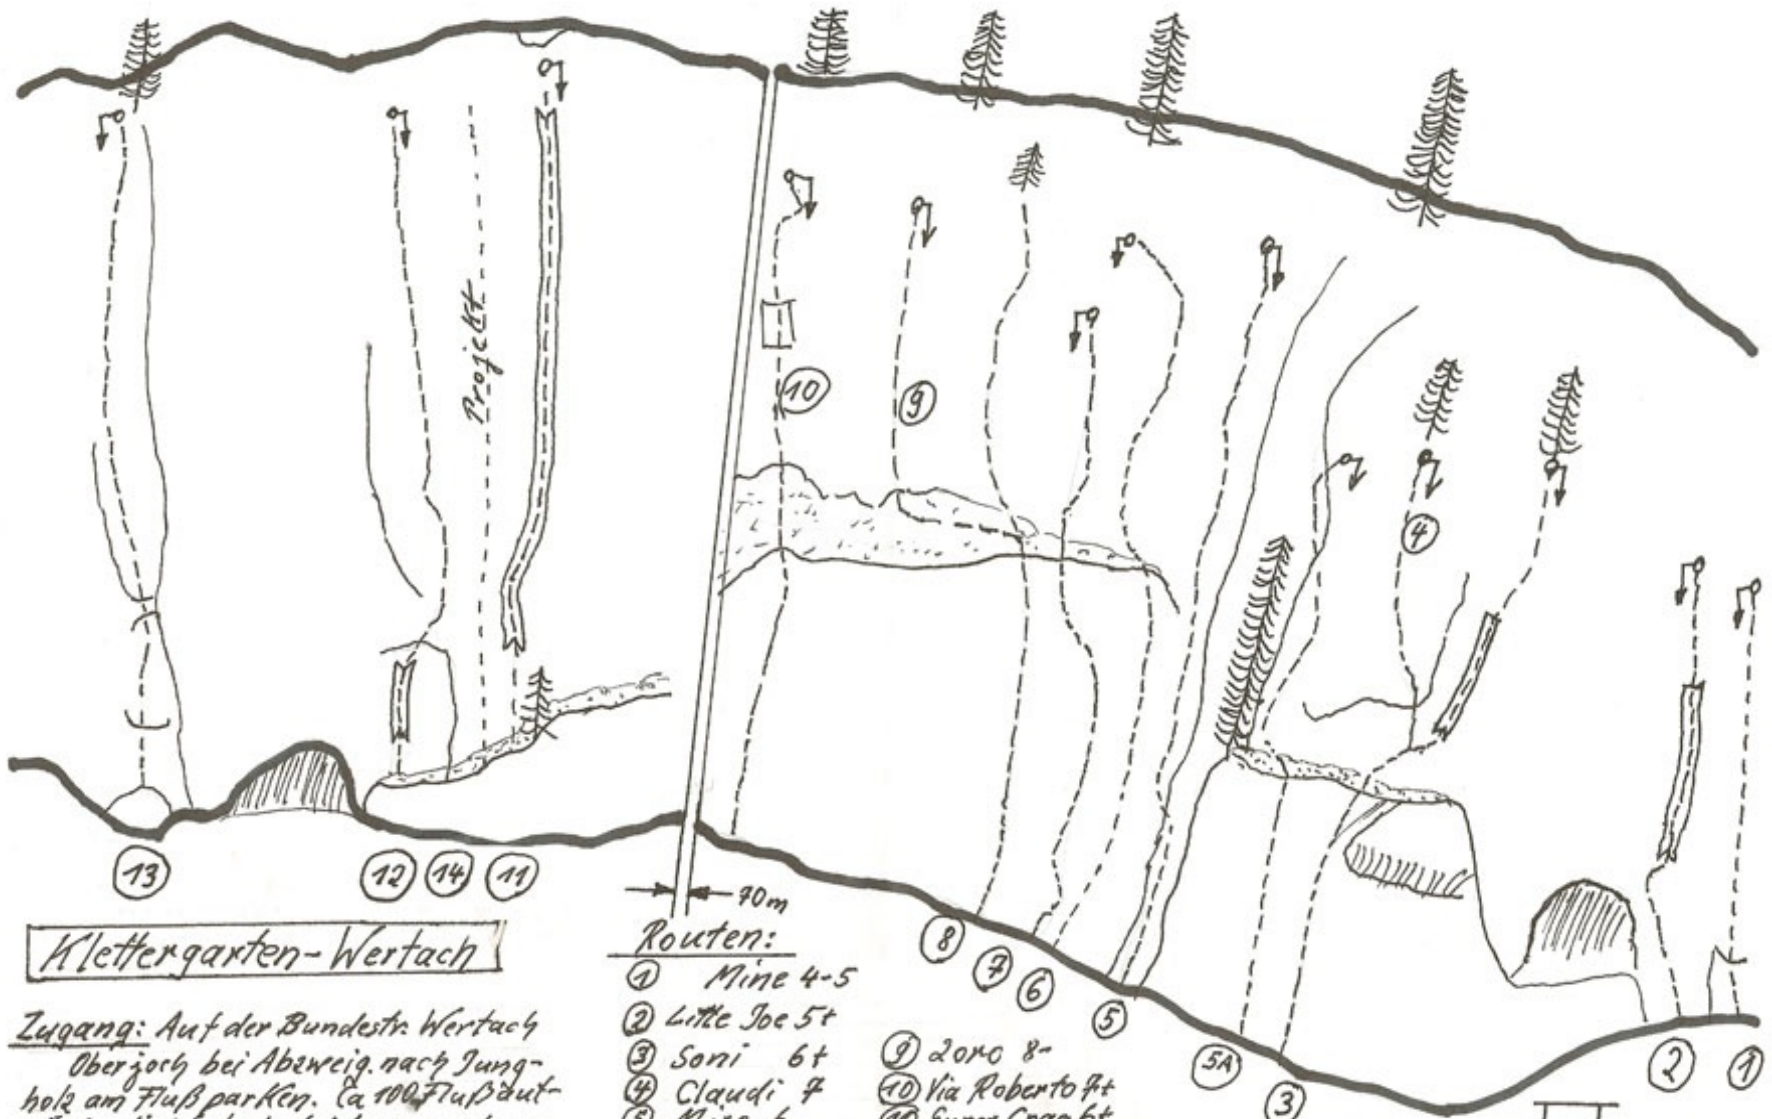 Projekt
10
9
4
13
12
14
11
70m
8
7
6
5
5A
3
2
1
Klettergarten-Wertach
Zugang: Auf der Bundestr. Wertach
Oberjoch bei Abzweig. nach Jung-
holz am Fluß parken. Ca 100 Flußauf-
Routen:
1 Mine 4-5
2 Little Joe 5+
3 Soni 6+
4 Claudi 7
9 Zoro 8-
10 Via Roberto 7+